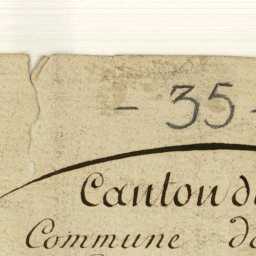 - 35 -
Canton de
Commune de